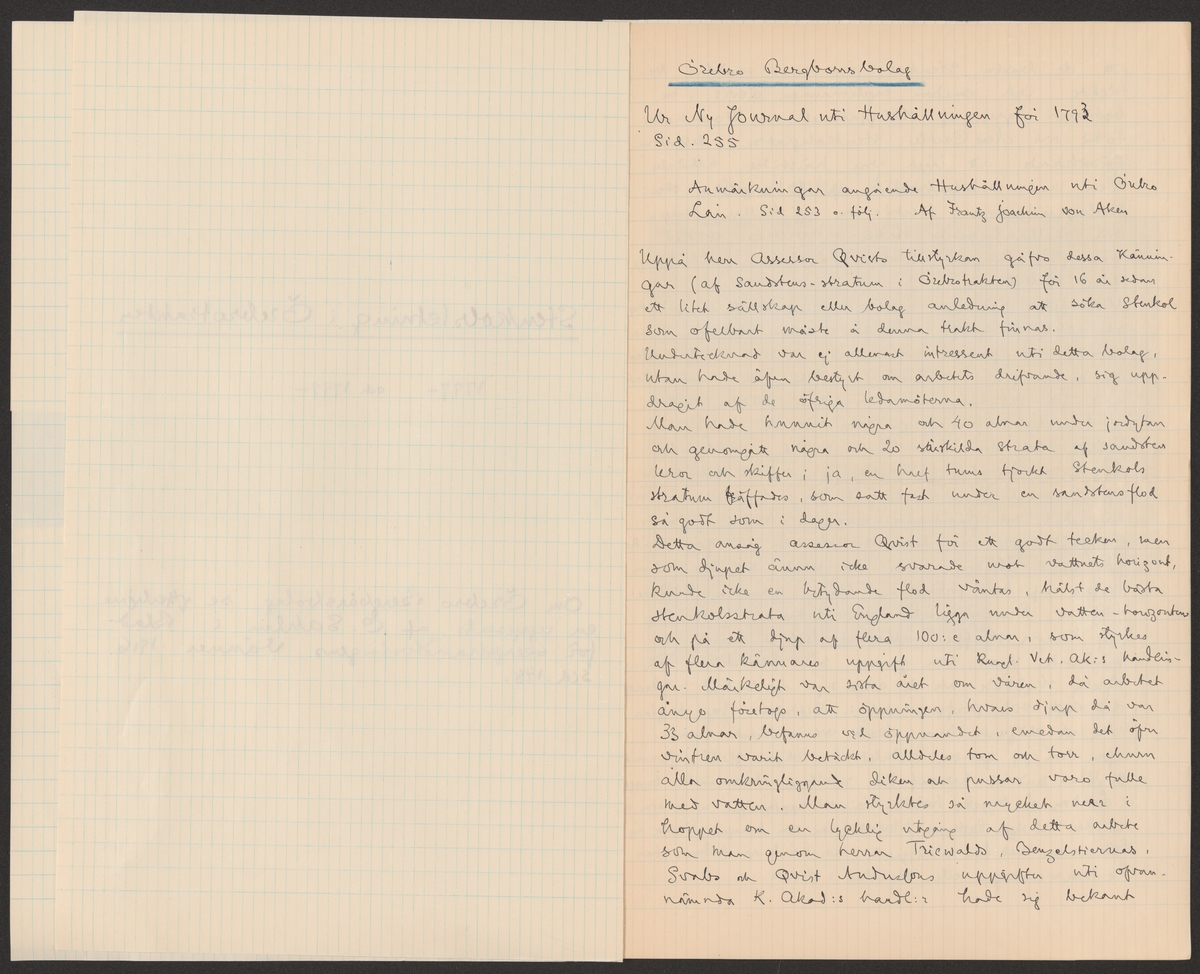 Örebro Bergborrsbolag
Ur Ny Journal uti Hushållningen för 1793
Sid. 255
Anmärkningar angående Hushållningen uti Örebro
Län. Sid 253 o. följ. Af Frantz Joachim von Aken
Uppå herr Assessor Qvists tillstyrkan gåfvo dessa Kännin-
gar (af Sandstens-stratum i Örebrotrakten) för 16 år sedan
ett litet sällskap eller bolag anledning att söka Stenkol
som ofelbart måste å denna trakt finnas.
Undertecknad var ej allenast intressent uti detta bolag,
utan hade äfven bestyret om arbetets drifvande, sig upp-
dragit af de öfriga ledamöterna.
Man hade hunnit några och 40 alnar under jordytan
och genomgått några och 20 särskilda strata af sandsten
leror och skiffer; ja, en half tums tjockt Stenkols
stratum träffades, som satt fast under en sandstensflod
så godt som i dagen.
Detta ansåg assessor Qvist för ett godt tecken, men
som djupet ännu icke svarade mot vattnets horizont,
kunde icke en betydande flod väntas, hälst de bästa
stenkolsstrata uti England ligga under vatten-horizonten
och på ett djup af flera 100:e alnar, som styrkes
af flera kännares uppgift uti Kungl. Vet. Ak:s handlin-
gar. Märkeligt var sista året om våren, då arbetet
ånyo företogs, att öppningen, hvars djup då var
33 alnar, befanns vid öppnandet, emedan det öfver
vintren varit betäckt, alldeles tom och torr, ehuru
alla omkringliggande diken och pussar voro fulle
med vatten. Man styrktes så mycket mer i
hoppet om en lycklig utgång af detta arbete
som man genom herrar Triewalds, Benzelstiernas,
Svabs och Qvist Anderssons uppgifter uti ofvan-
nämnda K. Akad:s handl:r hade sig bekant